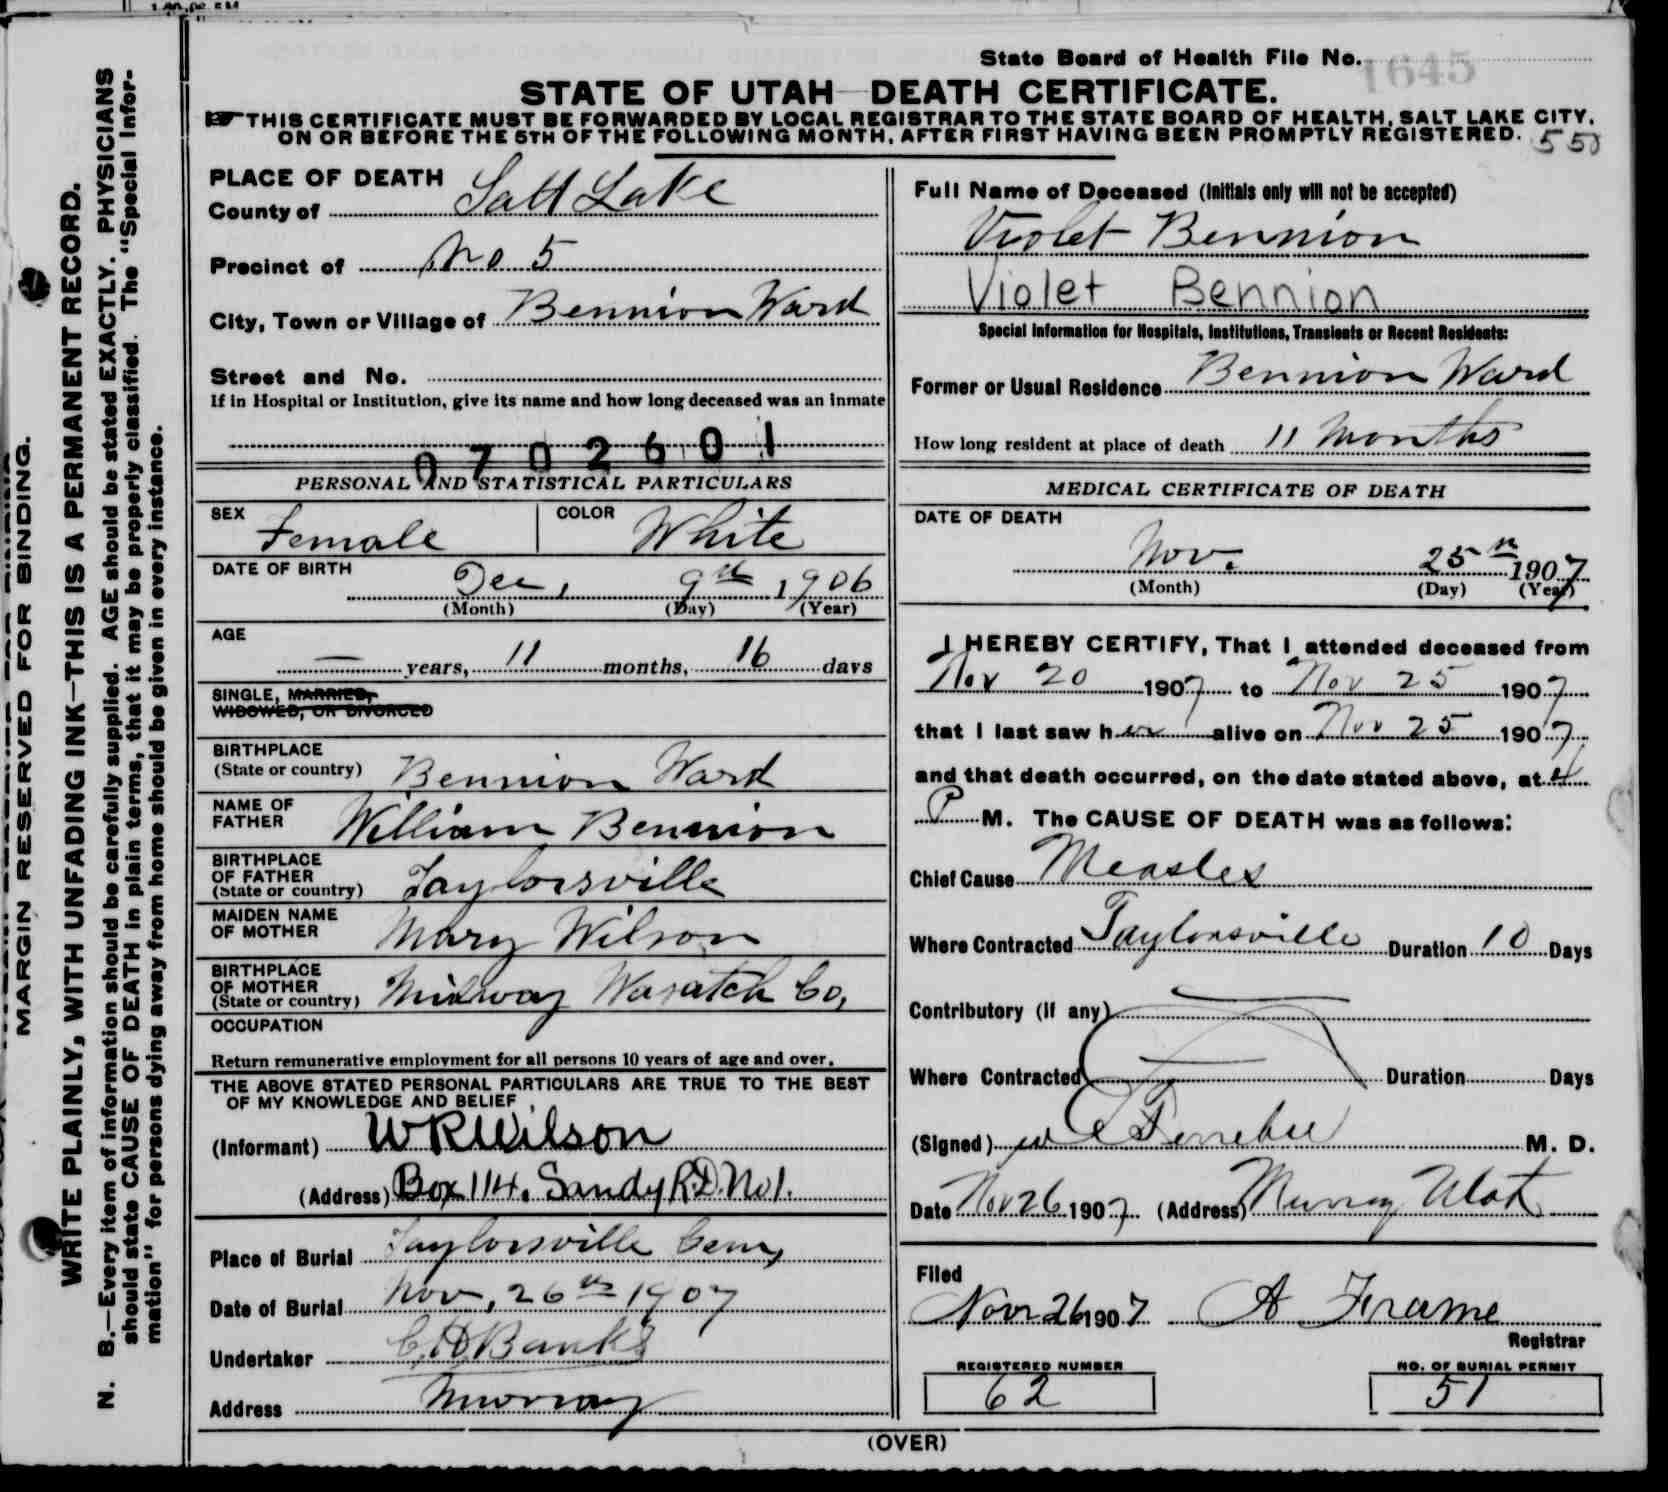 State Board of Health File No. 1645
STATE OF UTAH—DEATH CERTIFICATE.
THIS CERTIFICATE MUST BE FORWARDED BY LOCAL REGISTRAR TO THE STATE BOARD OF HEALTH, SALT LAKE CITY,
ON OR BEFORE THE 5TH OF THE FOLLOWING MONTH, AFTER FIRST HAVING BEEN PROMPTLY REGISTERED.
550
MARGIN RESERVED FOR BINDING.
WRITE PLAINLY, WITH UNFADING INK—THIS IS A PERMANENT RECORD.
N. B.—Every item of information should be carefully supplied. AGE should be stated EXACTLY. PHYSICIANS
should state CAUSE OF DEATH in plain terms, that it may be properly classified. The "Special Infor-
mation" for persons dying away from home should be given in every instance.
PLACE OF DEATH
County of Salt Lake
Precinct of No 5
City, Town or Village of Bennion Ward
Street and No.
If in Hospital or Institution, give its name and how long deceased was an inmate
0702601
PERSONAL AND STATISTICAL PARTICULARS
SEX Female COLOR White
DATE OF BIRTH Dec, 9th 1906
(Month) (Day) (Year)
AGE
— years, 11 months, 16 days
SINGLE, MARRIED,
WIDOWED, OR DIVORCED
BIRTHPLACE
(State or country) Bennion Ward
NAME OF
FATHER William Bennion
BIRTHPLACE
OF FATHER
(State or country) Taylorsville
MAIDEN NAME
OF MOTHER Mary Wilson
BIRTHPLACE
OF MOTHER
(State or country) Midway Wasatch Co,
OCCUPATION
Return remunerative employment for all persons 10 years of age and over.
THE ABOVE STATED PERSONAL PARTICULARS ARE TRUE TO THE BEST
OF MY KNOWLEDGE AND BELIEF
(Informant) W R Wilson
(Address) Box 114. Sandy R.D. No 1.
Place of Burial Taylorsville Cem,
Date of Burial Nov, 26th 1907
Undertaker C. H. Banks
Address Murray
Full Name of Deceased (Initials only will not be accepted)
Violet Bennion
Violet Bennion
Special Information for Hospitals, Institutions, Transients or Recent Residents:
Former or Usual Residence Bennion Ward
How long resident at place of death 11 Months
MEDICAL CERTIFICATE OF DEATH
DATE OF DEATH
Nov. 25th 1907
(Month) (Day) (Year)
I HEREBY CERTIFY, That I attended deceased from
Nov 20 1907 to Nov 25 1907
that I last saw her alive on Nov 25 1907
and that death occurred, on the date stated above, at 4
P M. The CAUSE OF DEATH was as follows:
Chief Cause Measles
Where Contracted Taylorsville Duration 10 Days
Contributory (If any)
Where Contracted Duration Days
(Signed) M. D.
Date Nov 26 1907 (Address) Murray Utah
Filed
Nov 26 1907 A Frame
Registrar
REGISTERED NUMBER
62
NO. OF BURIAL PERMIT
51
(OVER)